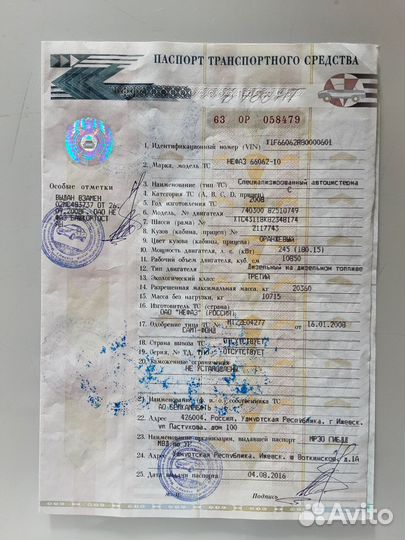 ПАСПОРТ ТРАНСПОРТНОГО СРЕДСТВА
63 ОР 058479
1. Идентификационный номер (VIN) X1F66062R80000601
2. Марка, модель ТС НЕФАЗ 66062-10
3. Наименование (тип ТС) Специализированный автоцистерна
4. Категория ТС (A, B, C, D, прицеп) C
5. Год изготовления ТС 2008
6. Модель, № двигателя 740300 82510749
7. Шасси (рама) № XTC43118K82348174
8. Кузов (кабина, прицеп) № 2117743
9. Цвет кузова (кабины, прицепа) ОРАНЖЕВЫЙ
10. Мощность двигателя, л. с. (кВт) 245 (180.15)
11. Рабочий объем двигателя, куб. см 10850
12. Тип двигателя Дизельный на дизельном топливе
13. Экологический класс ТРЕТИЙ
14. Разрешенная максимальная масса, кг 20360
15. Масса без нагрузки, кг 10715
16. Изготовитель ТС (страна)
ОАО "НЕФАЗ" (РОССИЯ)
17. Одобрение типа ТС № МТ22Е04277 от 16.01.2008
САМТ-ФОНД
18. Страна вывоза ТС ОТСУТСТВУЕТ
19. Серия, № ТД, ОТСУТСТВУЕТ
20. Таможенные ограничения
НЕ УСТАНОВЛЕНЫ
21. Наименование собственника ТС
АО БЕЛКАМНЕФТЬ
22. Адрес 426004, Россия, Удмуртская Республика, г Ижевск,
ул Пастухова, дом 100
23. Наименование организации, выдавшей паспорт МРЭО ГИБДД
МВД по УР
24. Адрес Удмуртская Республика, Ижевск, ш Воткинское, д.1А
25. Дата выдачи паспорта 04.08.2016
М. П. Подпись
Особые отметки
ВЫДАН ВЗАМЕН
Avito